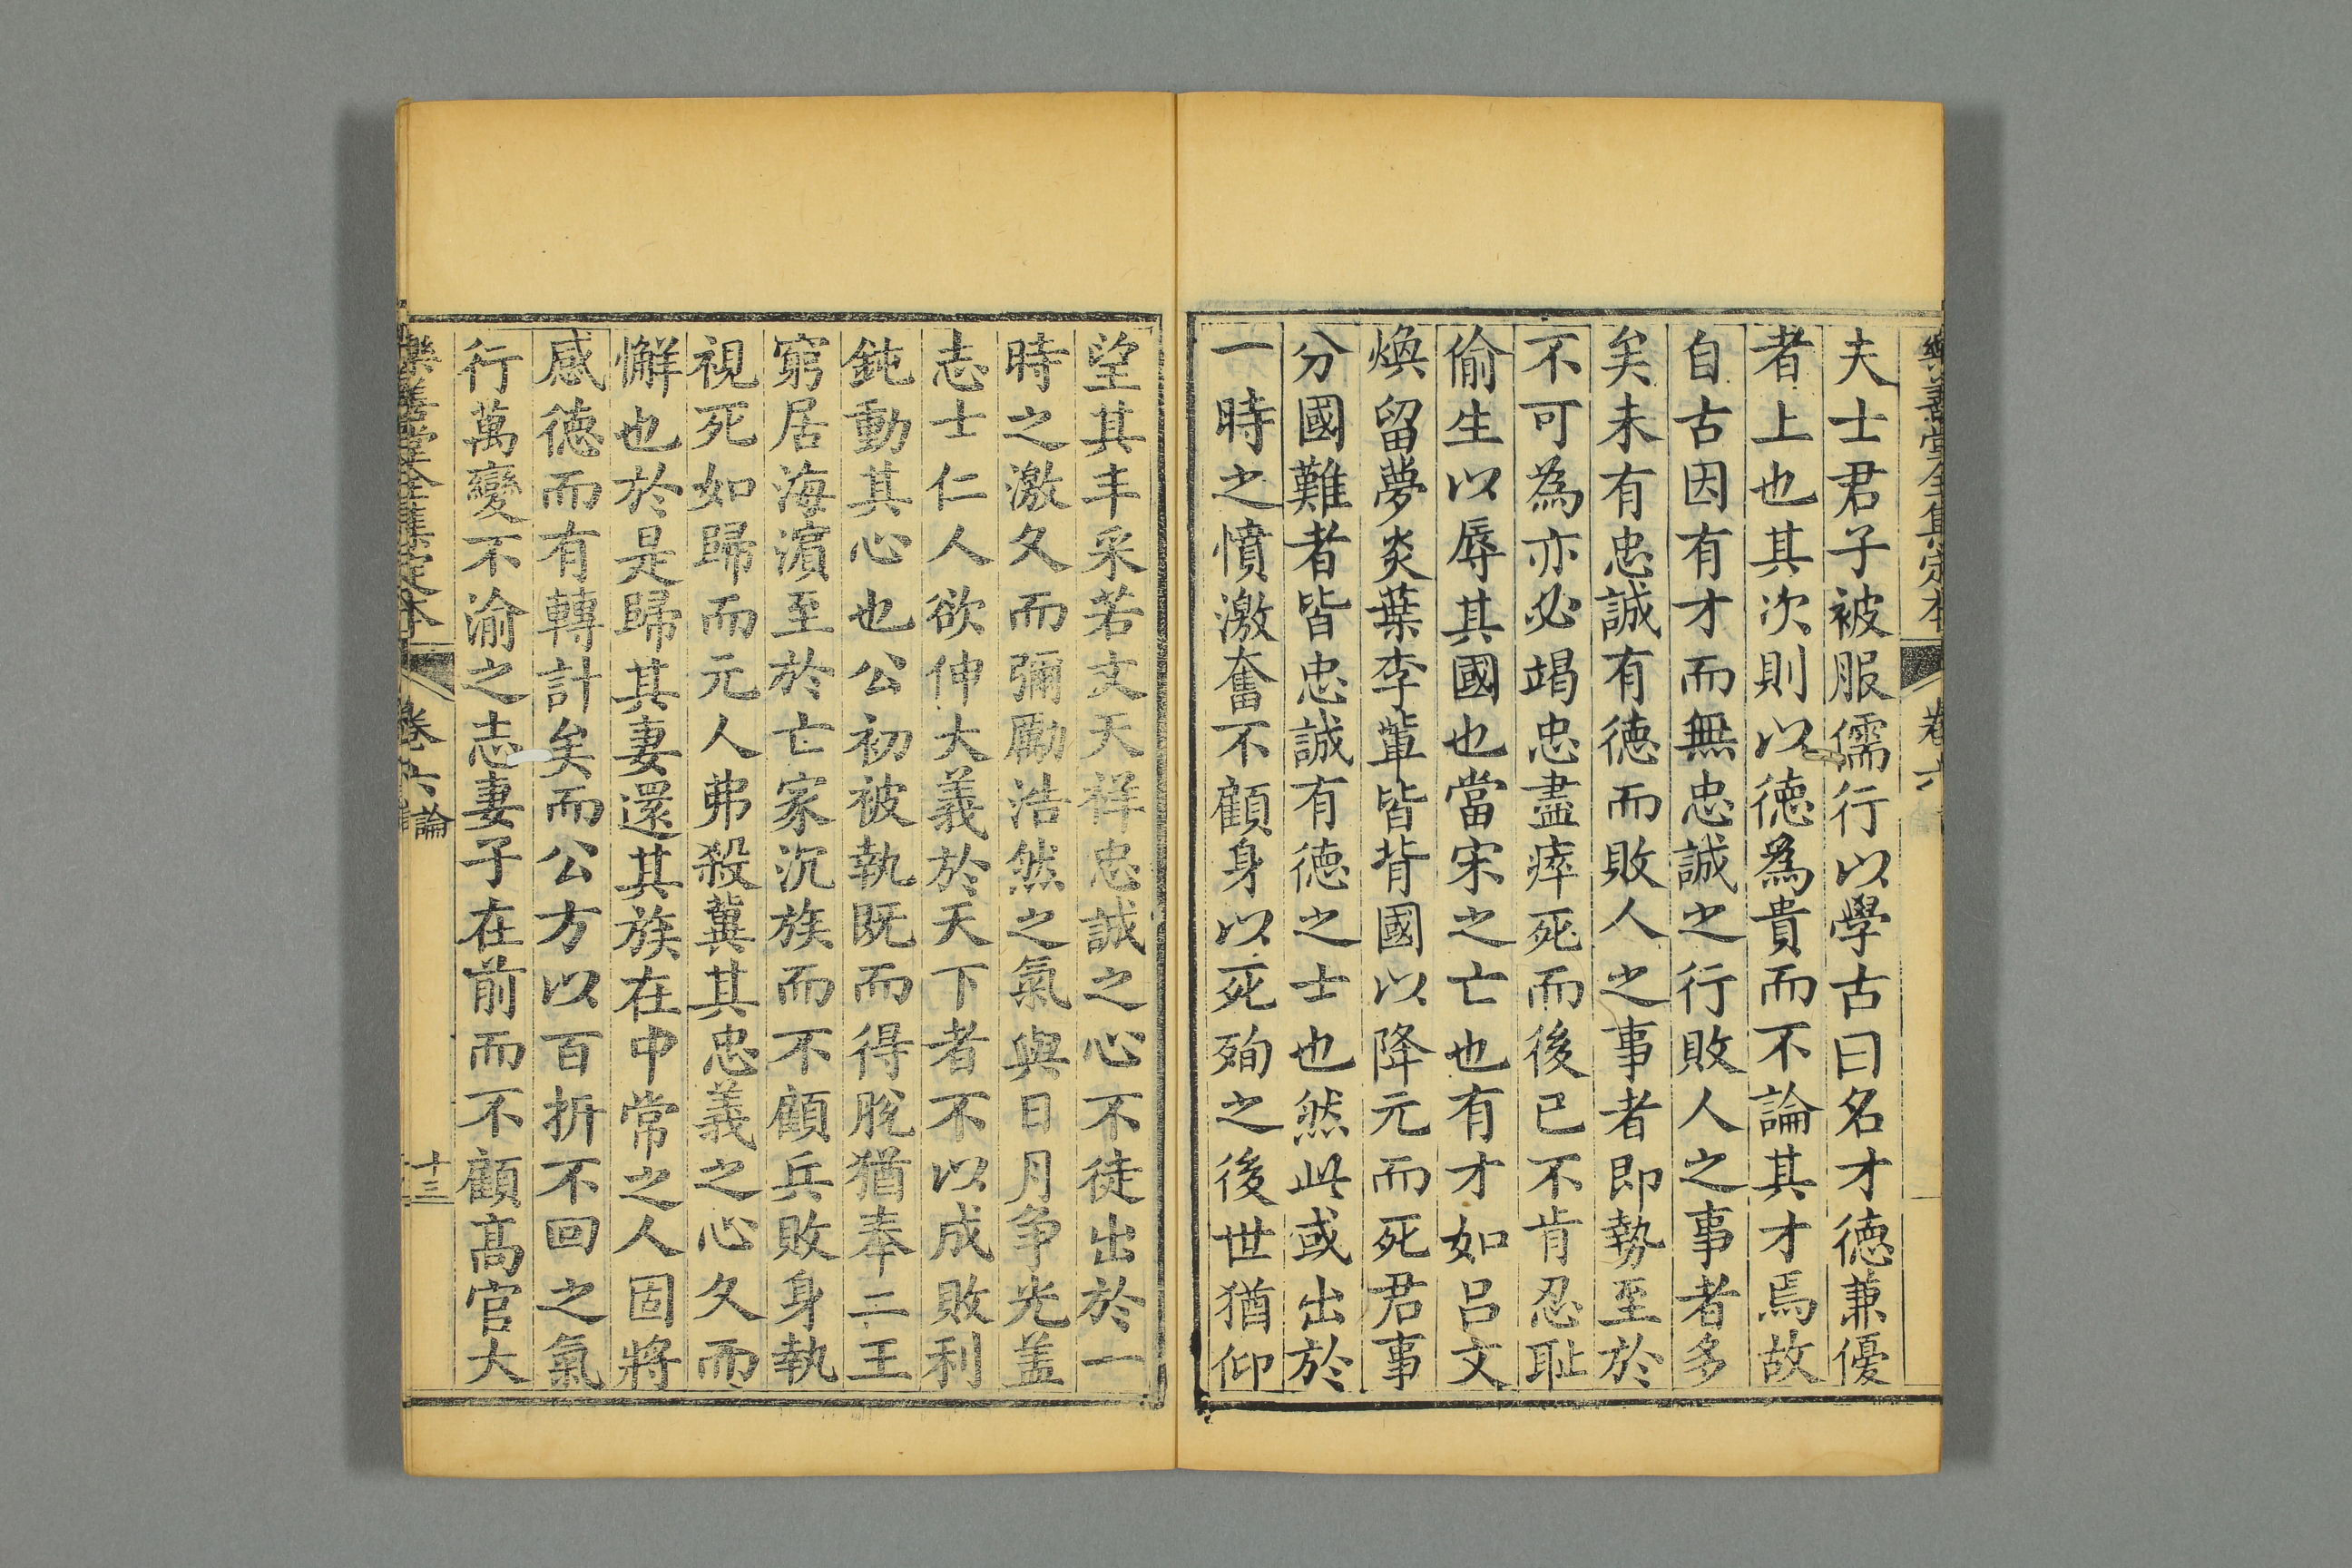 樂善堂全集定本 卷六
夫士君子被服儒行以學古曰名才德兼優
者上也其次則以德為貴而不論其才焉故
自古因有才而無忠誠之行敗人之事者多
矣未有忠誠有德而敗人之事者即勢至於
不可為亦必竭忠盡瘁死而後已不肯忍恥
偷生以辱其國也當宋之亡也有才如呂文
煥留夢炎葉李軰皆背國以降元而死君事
分國難者皆忠誠有德之士也然此或出於
一時之憤激奮不顧身以死殉之後世猶仰
望其丰采若文天祥忠誠之心不徒出於一
時之激久而彌勵浩然之氣與日月争光盖
志士仁人欲伸大義於天下者不以成敗利
鈍動其心也公初被執既而得脫猶奉二王
窮居海濵至於亡家沉族而不顧兵敗身執
視死如歸而元人弗殺冀其忠義之心久而
懈也於是歸其妻還其族在中常之人固將
感德而有轉計矣而公方以百折不回之氣
行萬變不渝之志妻子在前而不顧高官大
樂善堂全集定本 卷六 論 十三